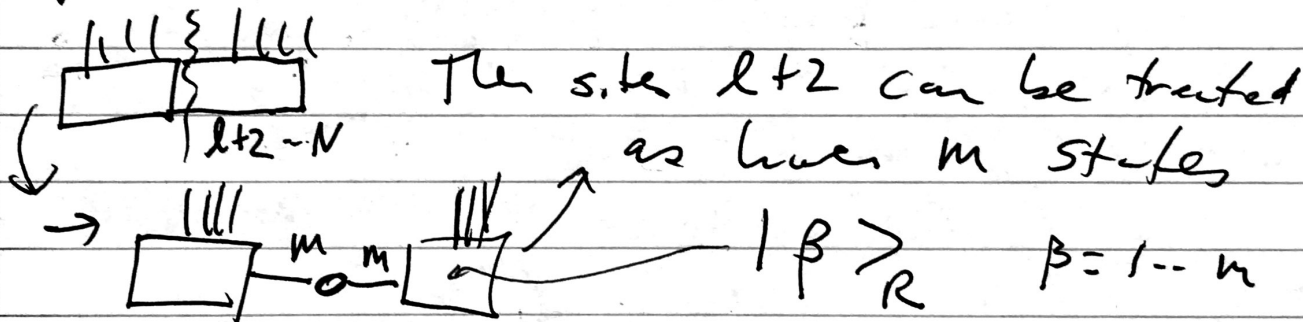 The sites l+2 can be treated
l+2 - N
as having m states
m m
|β>_R β = 1 -- m